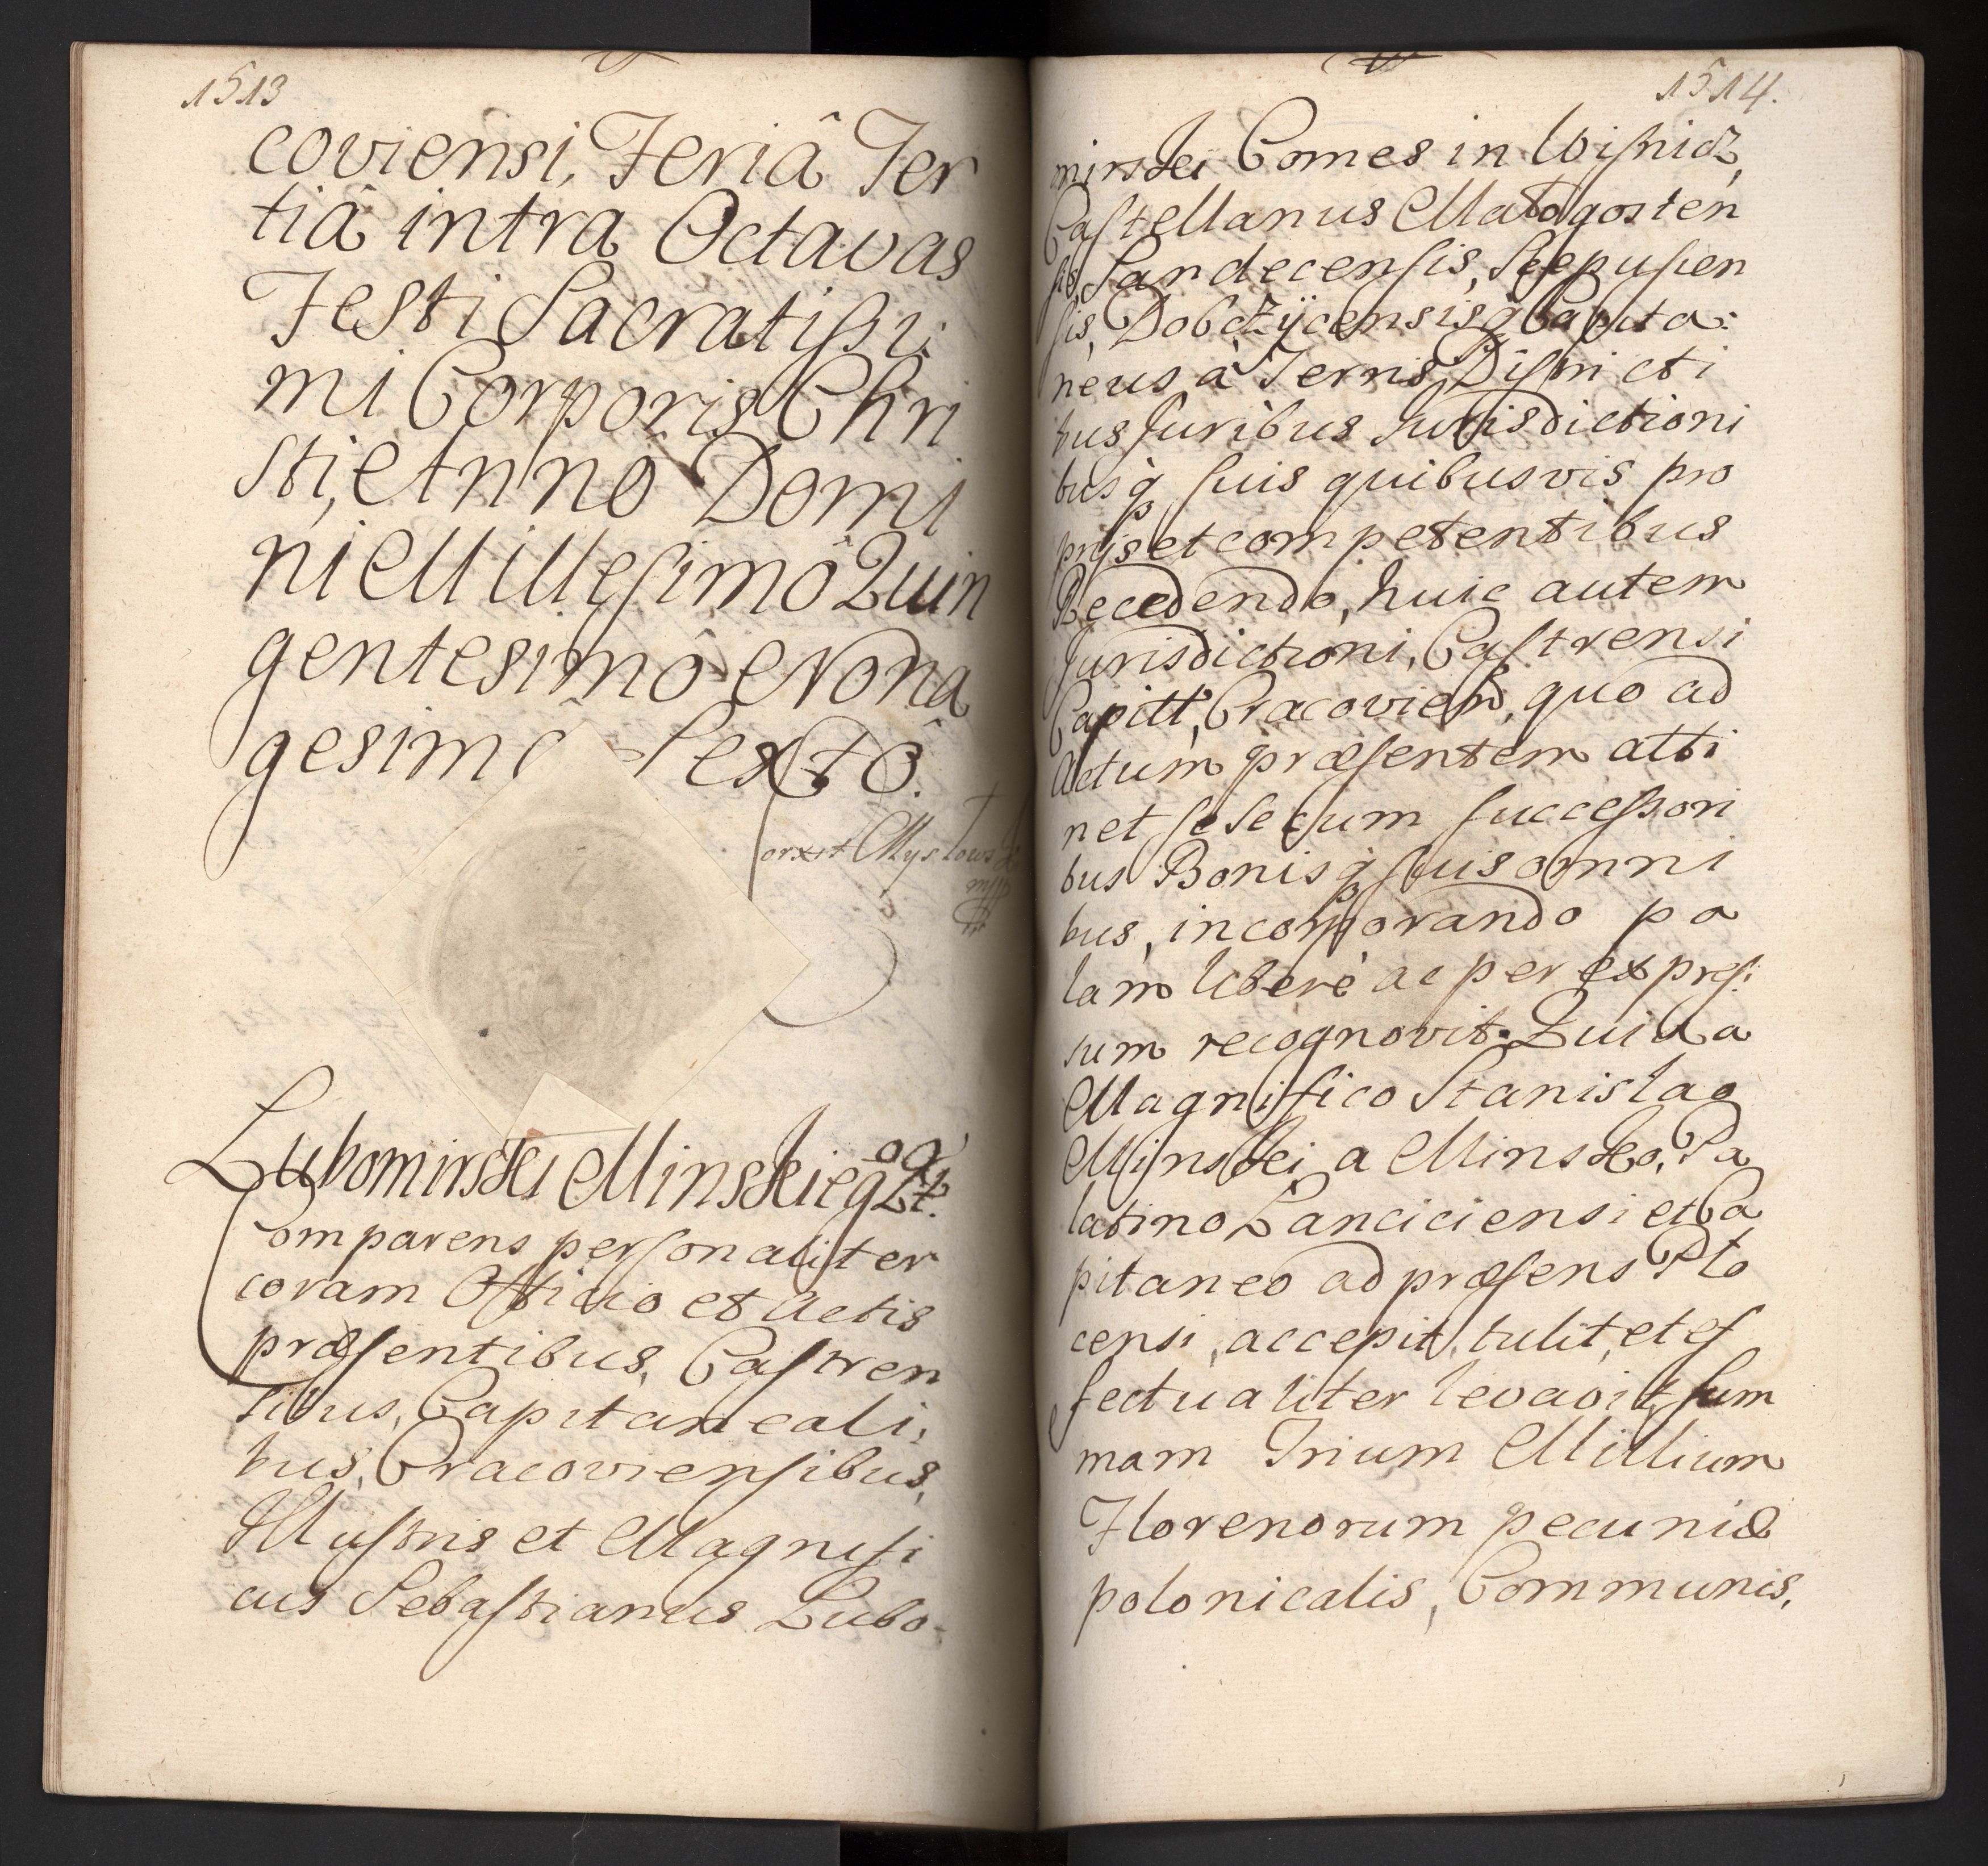 1513
coviensi, Feriâ Ter
tiâ intra Octavas
Festi Sacratissi:
mi Corporis Chri
sti, Anno Domi
ni Millesimô Quin
gentesimô Nona
gesimô Sextô.
Lubomirski Minskieg Qt.
Comparens personaliter
coram Officio et Actis
præsentibus, Castren
sibus, Capitaneali:
bus, Cracoviensibus,
Illustris et Magnifi
cus Sebastianus Lubo-
1514.
mirski Comes in Wisnicz,
Castellanus Małogosten
sis, Sandecensis, Scepusien
sis, Dobczÿcensisq Capita:
neus à Terris Districti
bus Juribus Jurisdictioni
busq suis quibusvis pro
prijs et competentibus
Recedendo, huic autem
Jurisdictioni, Castrensi
Capitt, Cracovien, quo ad
Actum præsentem atti
net se se cum successori
bus Bonisq suis omni
bus, incorporando pa
lam liberè ac per expres:
sum recognovit. Quia a
Magnifico Stanislao
Minski a Minsko, Pa
latino Lanciciensi et Ca
pitaneo ad præsens Plo
censi, accepit, tulit, et ef
fectualiter levavit sum
mam Trium Millium
Florenorum pecuniæ
polonicalis, Communis,